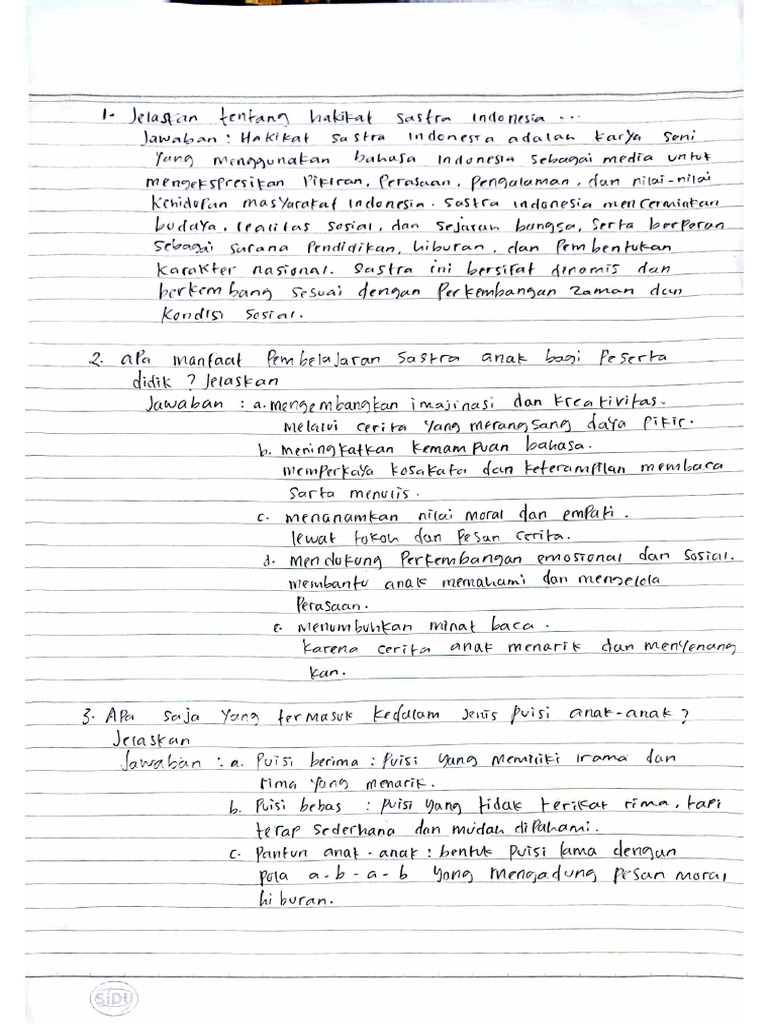 1. Jelaskan tentang hakikat sastra Indonesia ...
Jawaban : Hakikat sastra Indonesia adalah karya seni
yang menggunakan bahasa Indonesia sebagai media untuk
mengekspresikan pikiran, perasaan, pengalaman, dan nilai-nilai
kehidupan masyarakat Indonesia. Sastra Indonesia mencerminkan
budaya, realitas sosial, dan sejarah bangsa, serta berperan
sebagai sarana pendidikan, hiburan, dan pembentukan
karakter nasional. Sastra ini bersifat dinamis dan
berkembang sesuai dengan perkembangan zaman dan
kondisi sosial.
2. apa manfaat pembelajaran sastra anak bagi peserta
didik ? Jelaskan
Jawaban : a. mengembangkan imajinasi dan kreativitas.
melalui cerita yang merangsang daya pikir.
b. meningkatkan kemampuan bahasa.
memperkaya kosakata dan keterampilan membaca
sarta menulis.
c. menanamkan nilai moral dan empati.
lewat tokoh dan pesan cerita.
d. mendukung perkembangan emosional dan sosial.
membantu anak memahami dan mengelola
perasaan.
e. menumbuhkan minat baca.
karena cerita anak menarik dan menyenang
kan.
3. Apa saja yang termasuk kedalam jenis puisi anak-anak?
Jelaskan
Jawaban : a. Puisi berima : puisi yang memiliki irama dan
rima yang menarik.
b. Puisi bebas : puisi yang tidak terikat rima, tapi
tetap sederhana dan mudah dipahami.
c. Pantun anak-anak : bentuk puisi lama dengan
pola a-b-a-b yang mengadung pesan moral
hiburan.
SiDU